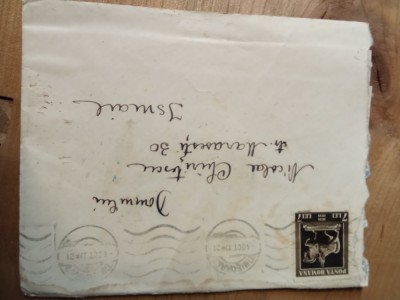 Domnului
Nicolae Chirițescu
str. Mărășești 30
Ismail
POSTA ROMANA
7 LEI 7 LEI